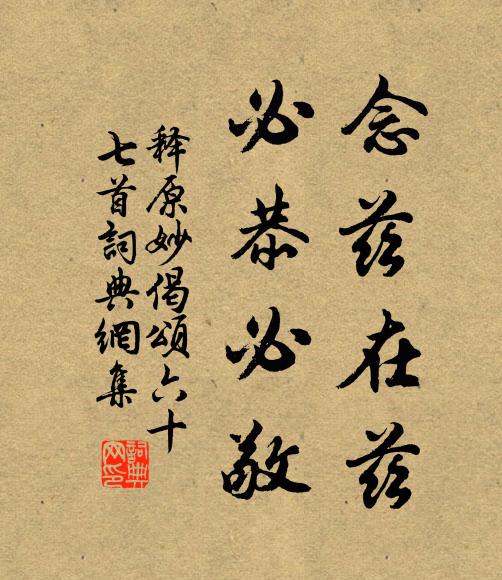 念茲在茲
必恭必敬
释原妙偈頌六十
七首詞典網集
詞典网印